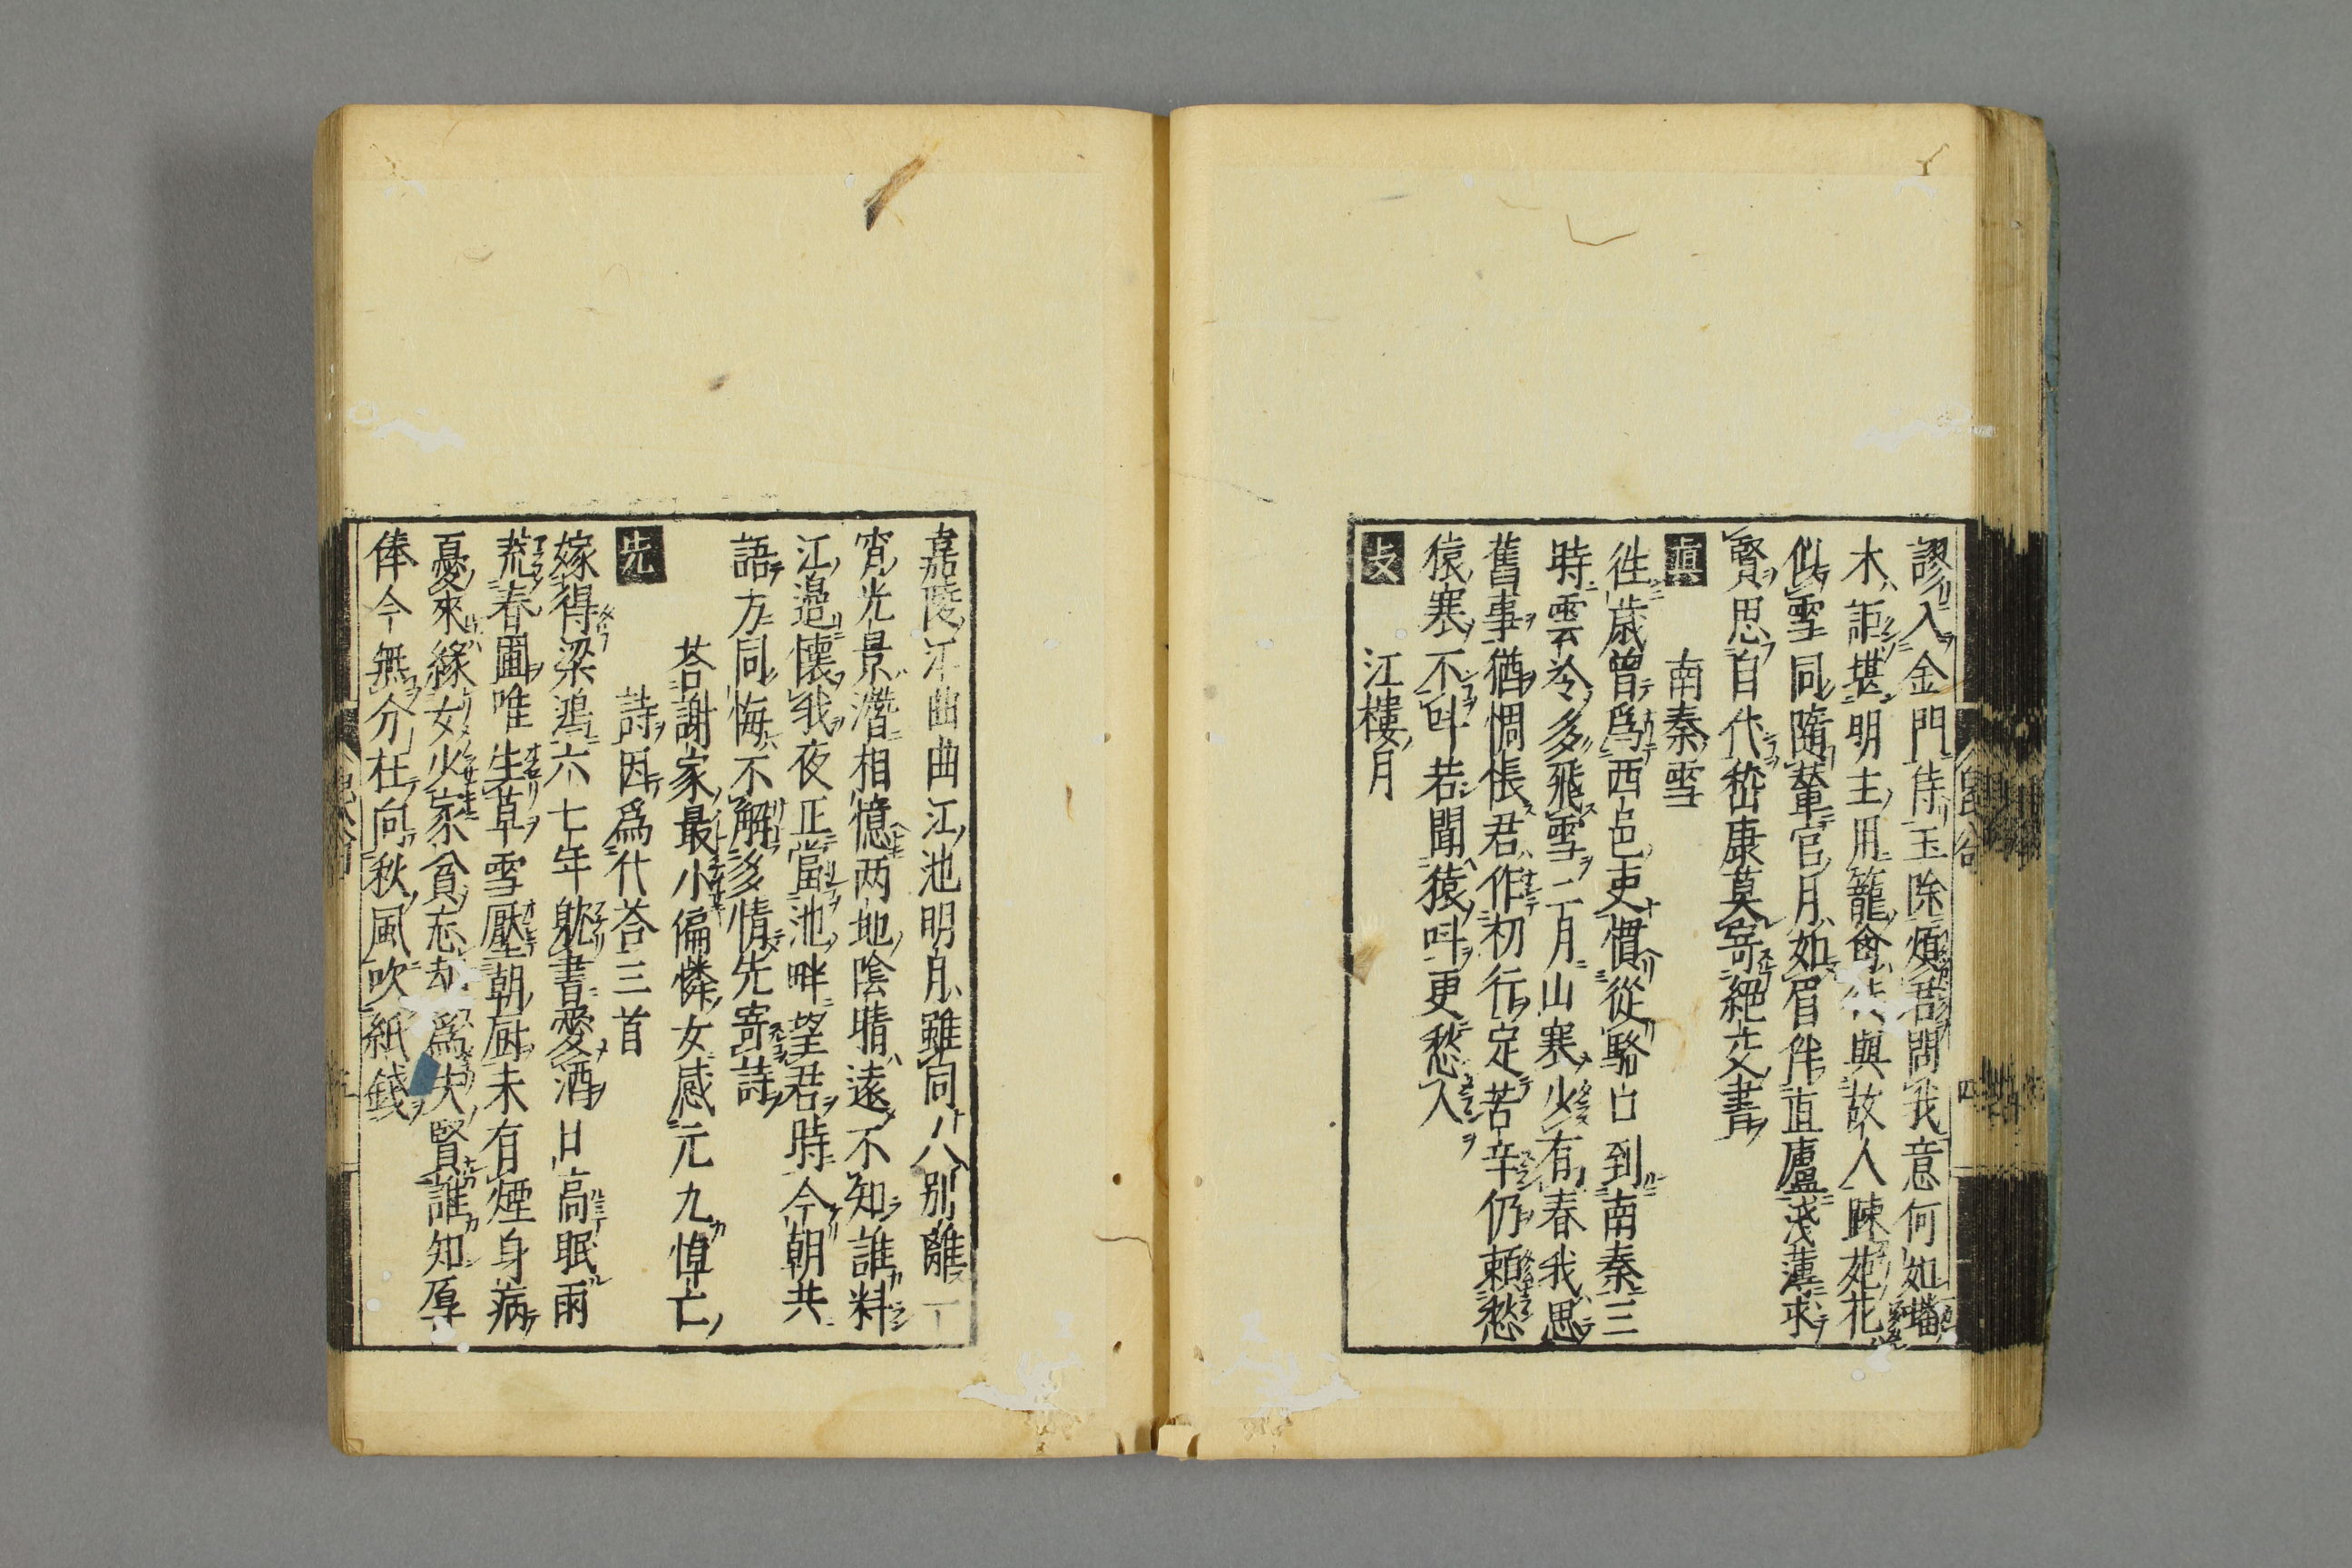 謬入金門侍玉除煩君問我意何如蟠
木詎堪明主用籠禽徒與故人踈苑花
似雪同隨輦宮月如眉伴直廬淺薄求
賢思自代嵆康莫寄絕交書
眞 南秦雪
徃歳曽爲西邑吏慣從駱口到南秦三
時雲冷多飛雪二月山寒少有春我思
舊事猶惆悵君作初行定苦辛仍頼愁
猿寒不叫若聞猿叫更愁人
支 江樓月
嘉陵江曲曲江池明月雖同人別離一
宵光景潛相憶两地陰晴遠不知誰料
江邉懷我夜正當池畔望君時今朝共
語方同悔不解多情先寄詩
荅謝家最小偏憐女感元九悼亡
先 詩因爲代荅三首
嫁得梁鴻六七年躭書愛酒日高眠雨
荒春圃唯生草雪壓朝厨未有煙身病
憂來緣女少家貧忘却爲夫賢誰知厚
俸今無分枉向秋風吹紙錢